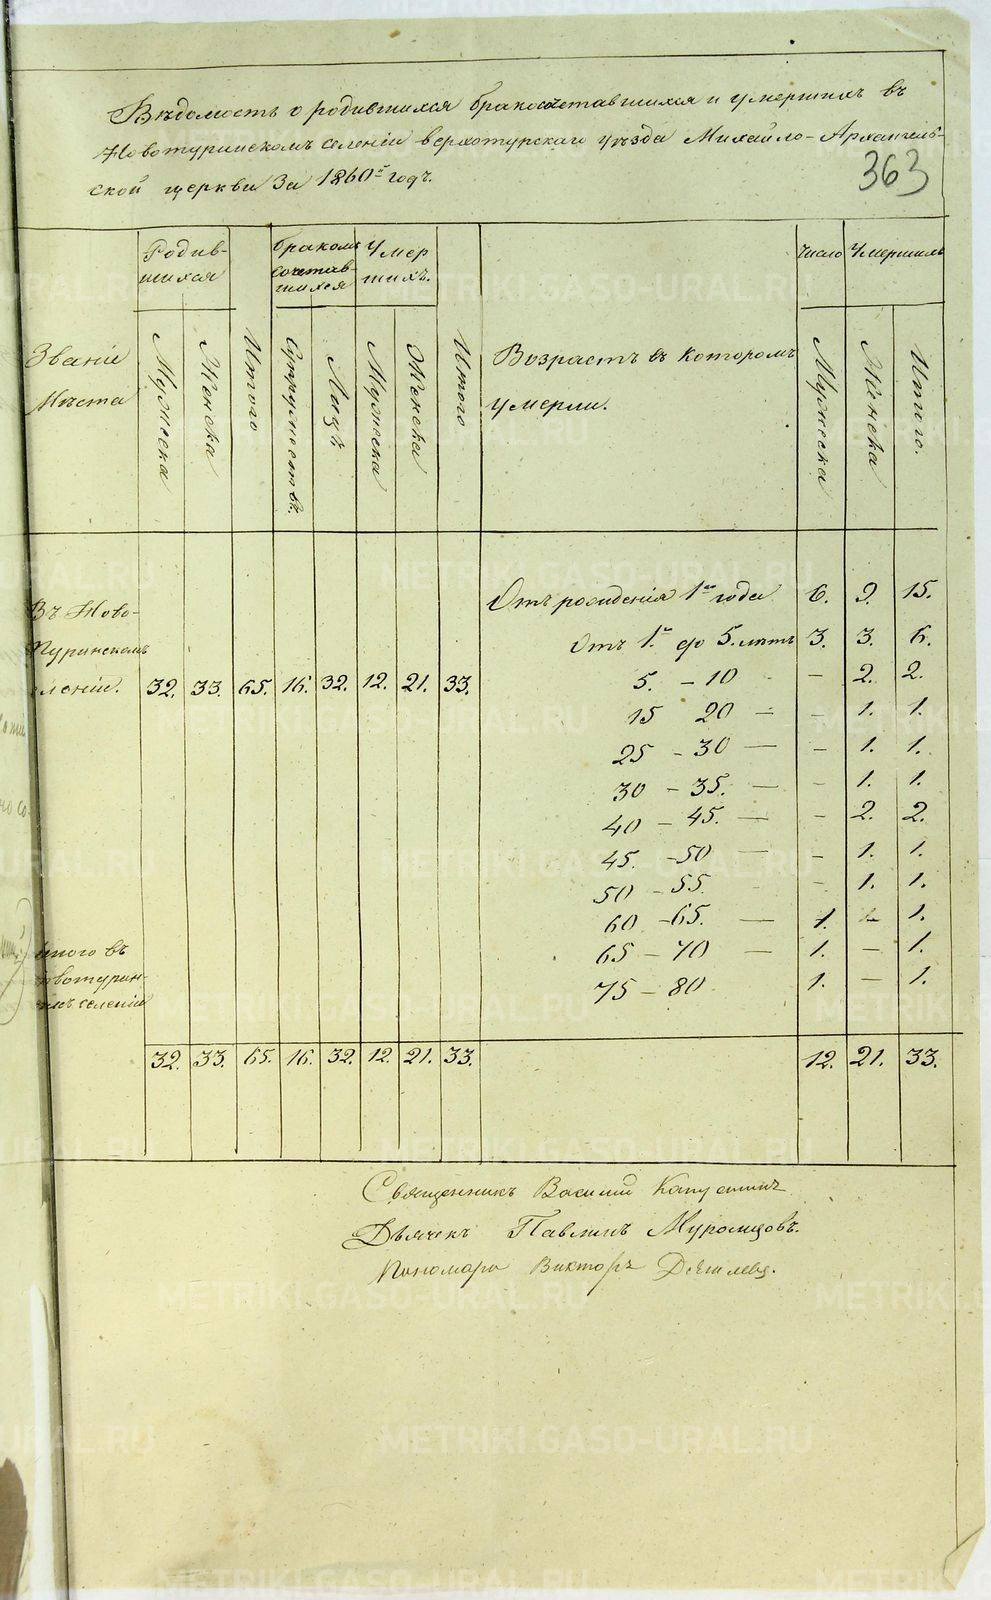 Вѣдомость о родившихся бракосочетавшихся и умершихъ въ
Новотуринскомъ селеніи верхотурскаго уѣзда Михайло-Архангель-
ской церкви За 1860й годъ.
363
Родив-
шихся
бракомъ
сочетав-
шихся
Умер
шихъ.
число Умершихъ
Званіе
Мѣста
Мужеска
Женска
Итого
Супружествъ.
Лицъ
Мужеска
Женска
Итого
Возрастъ въ которомъ
умерли.
Мужеска
Женска
Итого.
Въ Ново-
туринскомъ
леніи. 32. 33. 65. 16. 32. 12. 21. 33.
Отъ рожденія 1го года 6. 9. 15.
Отъ 1. до 5. лѣтъ 3. 3. 6.
5. - 10 - - 2. 2.
15 20 - - 1. 1.
25 - 30 - - 1. 1.
30 - 35. - - 1. 1.
40 - 45. - - 2. 2.
45. - 50 - - 1. 1.
50 - 55. - - 1. 1.
60 - 65. - 1. - 1.
65 - 70 - 1. - 1.
75 - 80 1. - 1.
итого въ
новотурин-
комъ селеніи
32. 33. 65. 16. 32. 12. 21. 33. 12. 21. 33.
Священникъ Василій Капустинъ
Дьячекъ Павлинъ Муромцовъ.
Пономарь Викторъ
METRIKI.GASO-URAL.RU